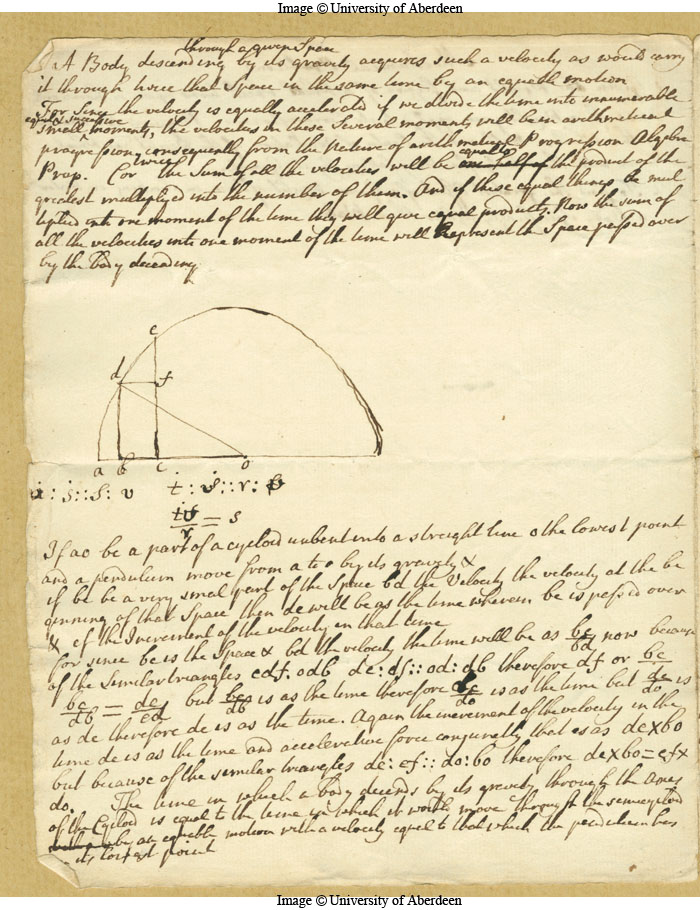 Image © University of Aberdeen
through a given Space
A Body descending by its gravity acquires such a velocity as would carry
it through twice that Space in the same time by an equable motion
For Since the velocity is equally accelerated if we divide the time into innumerable
equal & successive
small moments, the velocities in these Several moments will be in arithmetical
progression, consequently from the nature of arithmetical Progression Algebra
Prop. Cor twice the Sum of all the velocities will be equal to the product of the
greatest multiplyed into the number of them. And if these equal things be mul
tiplied into one moment of the time they will give equal products. Now the sum of
all the velocities into one moment of the time will Represent the Space passed over
by the Body descending
e
d f
a b c o
: ṡ :: s : v ṫ : :: r :
= s
If ao be a part of a cycloid unbent into a streight line o the lowest point
and a pendulum move from a to o by its gravity &
if bc be a very smal part of the Space bd the Velocity the velocity at the be
ginning of that Space then de will be as the time wherein bc is passed over
& ef the Increment of the velocity in that time
for since bc is the Space & bd the velocity the time will be as bc/bd now because
of the Similar triangles edf. odb de : df :: od : db therefore df or
bc/db = de/ed but bc/db is as the time therefore de/do is as the time but de/do is
as de therefore de is as the time. Again the increment of the velocity in the
time de is as the time and accelerative force conjunctly that is as de x bo
but because of the similar triangles de : ef :: do : bo therefore de x bo = ef x
do. The time in which a body decends by its gravity through the Axes
of the Cycloid is equal to the time in which it would move through the semicycloid
by an equable motion with a velocity equal to that which the pendulum has
its lowest point
Image © University of Aberdeen